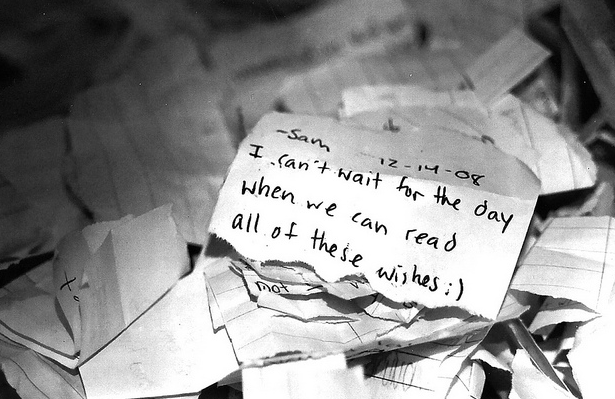 -Sam
12-14-08
I can't wait for the day
when we can read
all of these wishes:)
mot